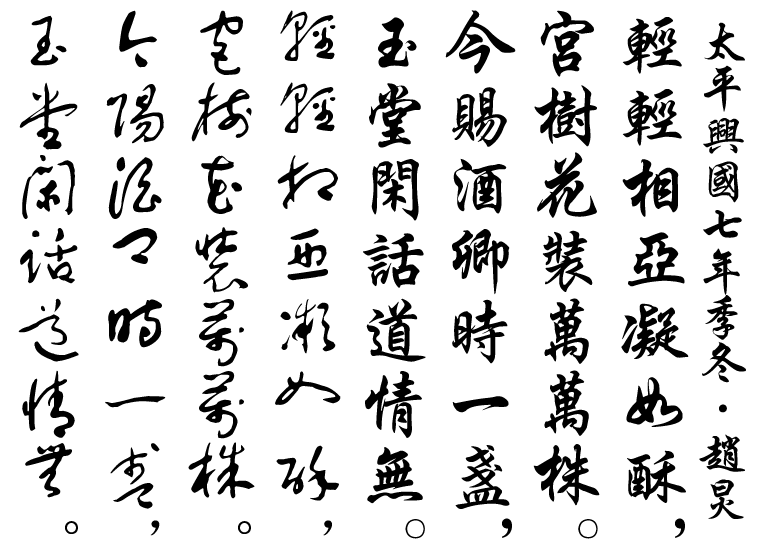 太平興國七年季冬・趙炅
輕輕相亞凝如酥，
宮樹花裝萬萬株。
今賜酒卿時一盞，
玉堂閑話道情無。
輕輕相亞凝如酥，
宮樹花裝萬萬株。
今賜酒卿時一盞，
玉堂閑話道情無。